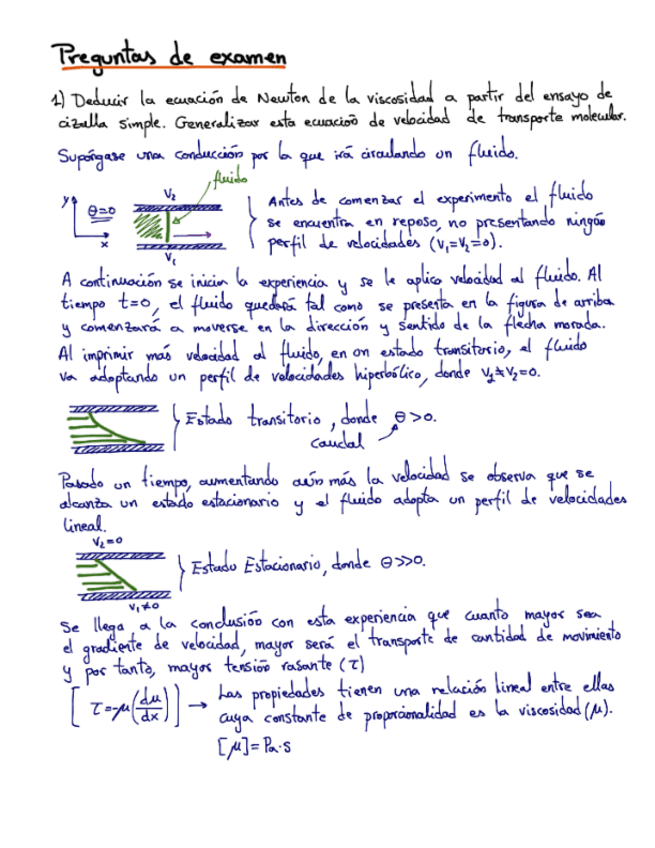 Preguntas de examen
1) Deducir la ecuación de Newton de la viscosidad a partir del ensayo de
cizalla simple. Generalizar esta ecuación de velocidad de transporte molecular.
Supóngase una conducción por la que irá circulando un fluido.
fluido
y
θ=0
x
V₂
V₁
Antes de comenzar el experimento el fluido
se encuentra en reposo, no presentando ningún
perfil de velocidades (V₁=V₂=0).
A continuación se inicia la experiencia y se le aplica velocidad al fluido. Al
tiempo t=0, el fluido quedará tal como se presenta en la figura de arriba
y comenzará a moverse en la dirección y sentido de la flecha morada.
Al imprimir más velocidad al fluido, en un estado transitorio, el fluido
va adoptando un perfil de velocidades hiperbólico, donde V₁≠V₂=0.
Estado transitorio, donde θ>0.
caudal
Pasado un tiempo, aumentando aún más la velocidad se observa que se
alcanza un estado estacionario y el fluido adopta un perfil de velocidades
lineal.
V₂=0
Estado Estacionario, donde θ>>0.
V₁≠0
Se llega a la conclusión con esta experiencia que cuanto mayor sea
el gradiente de velocidad, mayor será el transporte de cantidad de movimiento
y por tanto, mayor tensión rasante (τ)
[τ=-μ(du/dx)] → Las propiedades tienen una relación lineal entre ellas
cuya constante de proporcionalidad es la viscosidad (μ).
[μ]= Pa·s